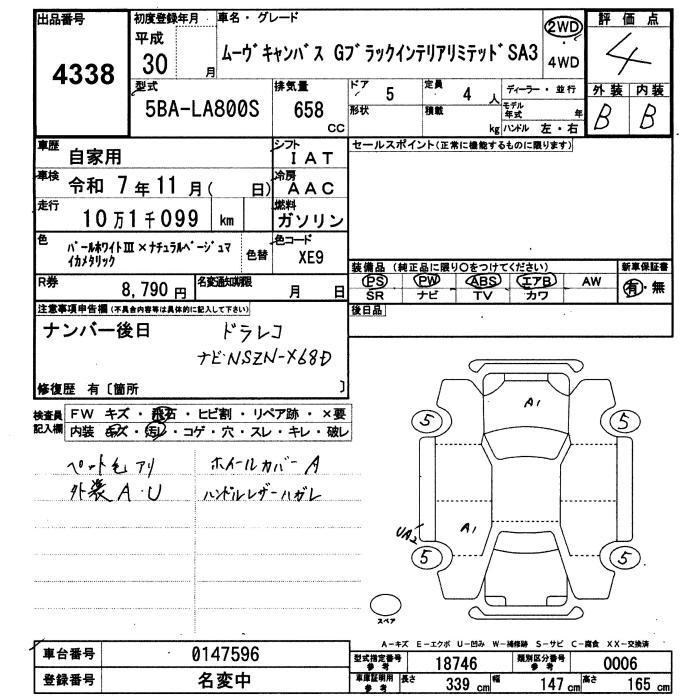 出品番号
4338
初度登録年月
平成
30 月
車名・グレード
ムーヴキャンバス GブラックインテリアリミテッドSA3
2WD
4WD
評価点
4
外装 内装
B B
型式
5BA-LA800S
排気量
658
CC
ドア 5
形状
定員 4 人
積載 kg
ディーラー・並行
モデル年式 年
ハンドル 左・右
車歴
自家用
シフト
IAT
セールスポイント(正常に機能するものに限ります)
車検
令和 7年11月( 日)
冷房
AAC
走行
10万1千099 km
燃料
ガソリン
色
パールホワイトⅢ×ナチュラルベージュマイカメタリック
色替
色コード
XE9
R券
8,790円
名変通知期限
月 日
装備品(純正品に限り○をつけてください)
PS PW ABS エアB AW
SR ナビ TV カワ
新車保証書
有・無
後日品
注意事項申告欄(不具合内容等は具体的に記入して下さい)
ナンバー後日 ドラレコ
ナビ:NSZN-X68D
修復歴 有〔箇所 〕
検査員記入欄
FW キズ・飛石・ヒビ割・リペア跡・×要
内装 キズ・汚レ・コゲ・穴・スレ・キレ・破レ
ペット毛アリ
ホイールカバーA
外装A・U
ハンドルレザーハガレ
A1
5 5
A1
UA2
5 5
スペア
A-キズ E-エクボ U-凹み W-補修跡 S-サビ C-腐食 XX-交換済
車台番号
0147596
登録番号
名変中
型式指定番号参考
18746
類別区分番号参考
0006
車庫証明用参考
長さ 339cm 幅 147cm 高さ 165cm